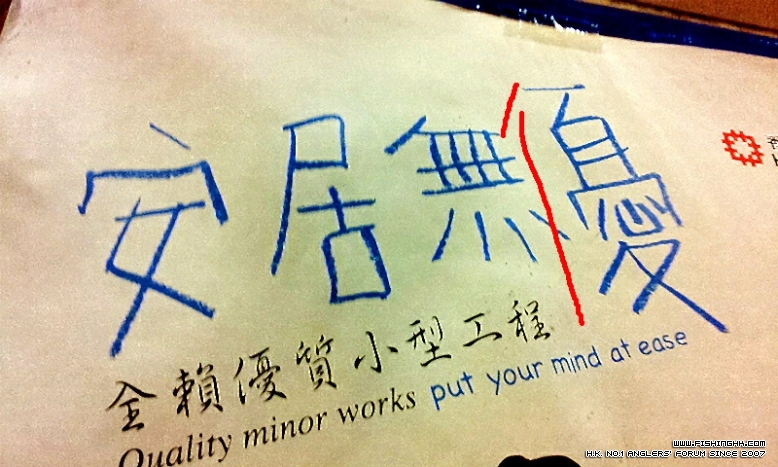 安居無優
全賴優質小型工程
Quality minor works put your mind at ease
WWW.FISHINGHK.COM
H.K. NO.1 ANGLERS' FORUM SINCE 2007